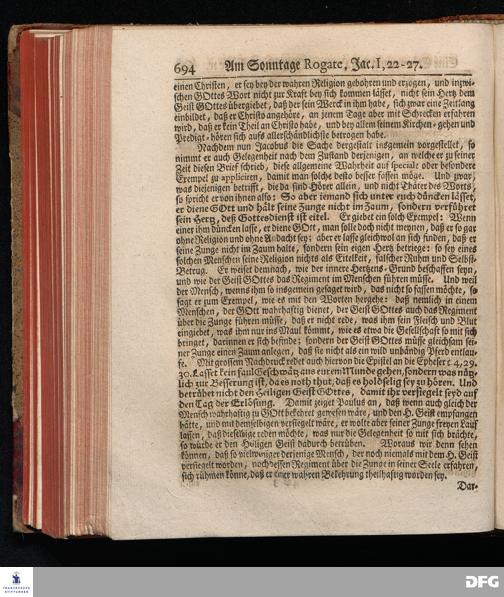 694 Am Sonntage Rogate, Jac. I, 22-27.
einen Christen, er sey bey der wahren Religion gebohren und erzogen, und inzwi-
schen GOttes Wort nicht zur Kraft bey sich kommen lässet, nicht sein Hertz dem
Geist GOttes übergiebet, daß er sein Werck in ihm habe, sich zwar eine Zeitlang
einbildet, daß er Christo angehöre, an jenem Tage aber mit Schrecken erfahren
wird, daß er kein Theil an Christo habe, und bey allem seinem Kirchen-gehen und
Predigt-hören sich aufs allerschändlichste betrogen habe.
Nachdem nun Jacobus die Sache dergestalt insgemein vorgestellet, so
nimmt er auch Gelegenheit nach dem Zustand derjenigen, an welche er zu seiner
Zeit diesen Brief schrieb, diese allgemeine Wahrheit auf speciale oder besondere
Exempel zu appliciren, damit man solche desto besser fassen möge. Und zwar,
was diejenigen betrifft, die da sind Hörer allein, und nicht Thäter des Worts,
so spricht er von ihnen also: So aber iemand sich unter euch düncken lässet,
er diene GOtt und hält seine Zunge nicht im Zaum, sondern verführet
sein Hertz, deß Gottesdienst ist eitel. Er giebet ein solch Exempel: Wenn
einer ihm düncken lasse, er diene GOtt, man solle doch nicht meynen, daß er so gar
ohne Religion und ohne Andacht sey; aber er lasse gleichwol an sich finden, daß er
seine Zunge nicht im Zaum halte, sondern sein eigen Hertz betriege: so sey eines
solchen Menschen seine Religion nichts als Eitelkeit, falscher Ruhm und Selbst-
Betrug. Er weiset demnach, wie der innere Hertzens-Grund beschaffen seyn,
und wie der Geist GOttes das Regiment im Menschen führen müsse. Und weil
der Mensch, wenns ihm so insgemein gesagt wird, das nicht so fassen möchte, so
sagt er zum Exempel, wie es mit den Worten hergehe: daß nemlich in einem
Menschen, der GOtt wahrhaftig dienet, der Geist GOttes auch das Regiment
über die Zunge führen müsse, daß er nicht rede, was ihm sein Fleisch und Blut
eingiebet, was ihm nur ins Maul kömmt, wie es etwa die Gesellschaft so mit sich
bringet, darinnen er sich befinde; sondern der Geist GOttes müsse gleichsam sei-
ner Zunge einen Zaum anlegen, daß sie nicht als ein wild unbändig Pferd entlauf-
fe. Mit grossem Nachdruck redet auch hiervon die Epistel an die Epheser c. 4, 29.
30. Lasset kein faul Geschwätz aus eurem Munde gehen, sondern was nütz-
lich zur Besserung ist, da es noth thut, daß es holdselig sey zu hören. Und
betrübet nicht den Heiligen Geist GOttes, damit ihr versiegelt seyd auf
den Tag der Erlösung. Damit zeiget Paulus an, daß wenn auch gleich der
Mensch wahrhaftig zu GOtt bekehret gewesen wäre, und den H. Geist empfangen
hätte, und mit demselbigen versiegelt wäre, er wolte aber seiner Zunge freyen Lauf
lassen, daß dieselbige reden möchte, was nur die Gelegenheit so mit sich brächte,
so würde er den Heiligen Geist dadurch betrüben. Woraus wir denn sehen
können, daß so vielweniger derjenige Mensch, der noch niemals mit dem H. Geist
versiegelt worden, noch dessen Regiment über die Zunge in seiner Seele erfahren,
sich rühmen könne, daß er einer wahren Bekehrung theilhaftig worden sey.
Dar-
FRANCKESCHE STIFTUNGEN
DFG